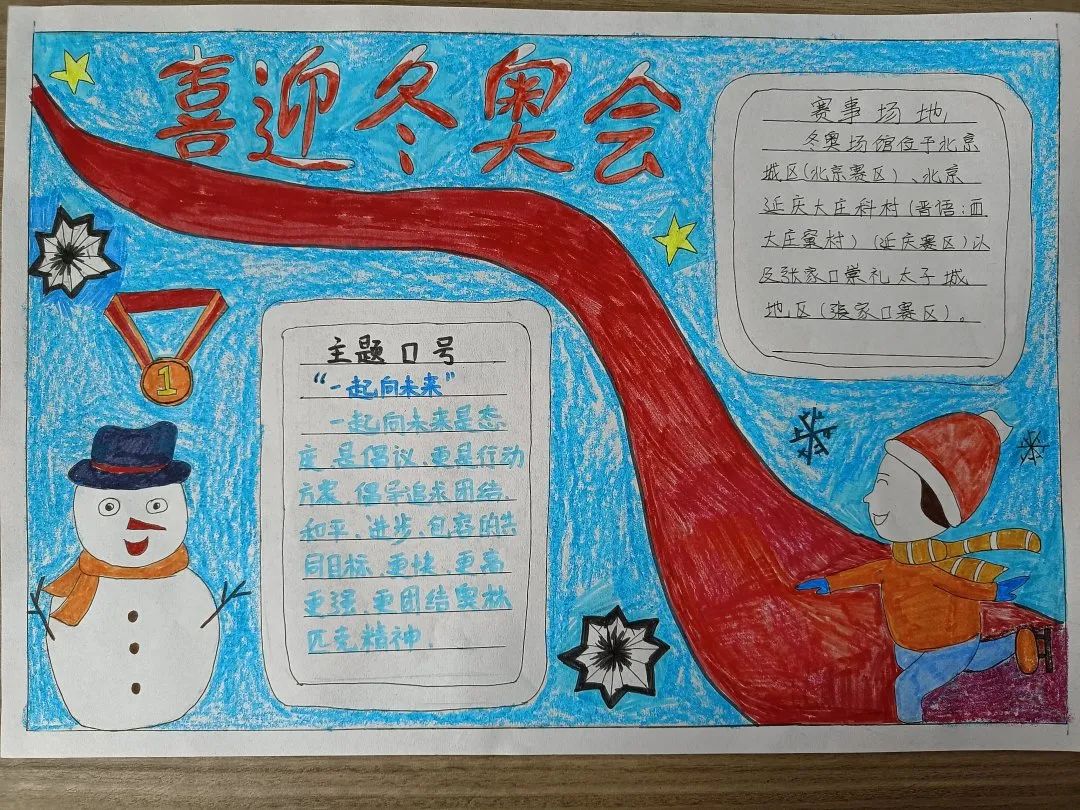 喜迎冬奥会
赛事场地
冬奥场馆位于北京
城区(北京赛区)、北京
延庆大庄科村(晋悟:西
大庄窠村)(延庆赛区)以
及张家口崇礼太子城
地区(张家口赛区)。
1
主题口号
“一起向未来”
一起向未来是态
度.是倡议.更是行动
方案.倡导追求团结.
和平.进步.包容的共
同目标.更快.更高
更强.更团结奥林
匹克精神.